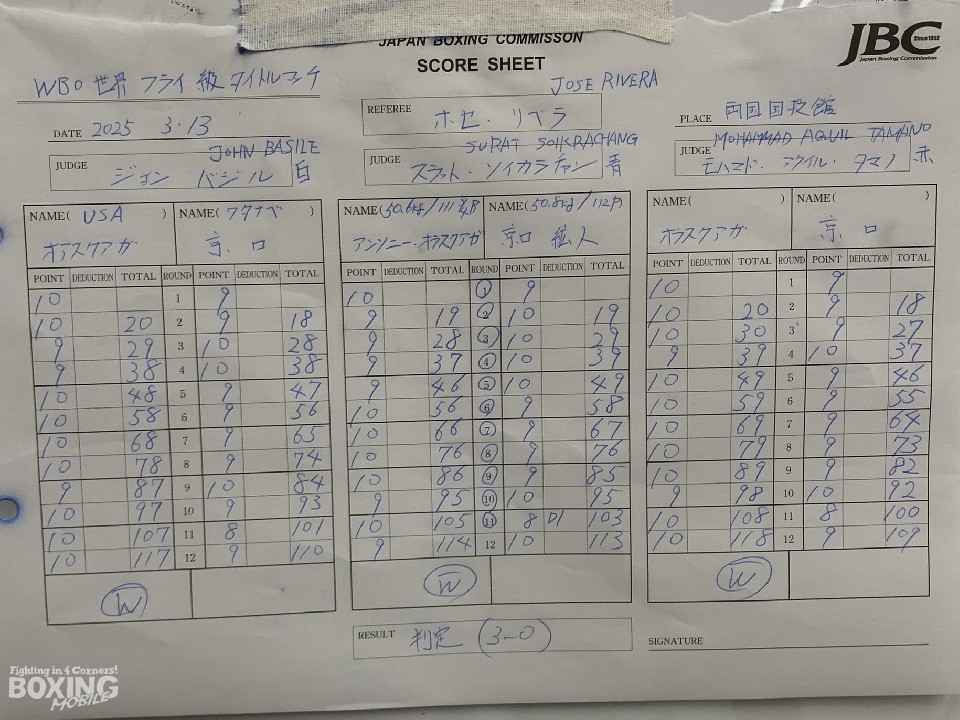 JAPAN BOXING COMMISSON
SCORE SHEET
JBC
Since1952
Japan Boxing Commission
WBO世界フライ級タイトルマッチ
JOSE RIVERA
REFEREE ホセ・リベラ
PLACE 両国国技館
DATE 2025 3.13
JOHN BASILE
JUDGE ジョン バジル 白
SURAT SOIKRACHANG
JUDGE スラット・ソイカラチャン 青
MOHAMMAD AQUIL TAMANO
JUDGE モハマド・アクイル・タマノ 赤
NAME( USA ) NAME(ワタナベ )
オラスクアガ 京口
POINT DEDUCTION TOTAL ROUND POINT DEDUCTION TOTAL
10 1 9
10 20 2 9 18
9 29 3 10 28
9 38 4 10 38
10 48 5 9 47
10 58 6 9 56
10 68 7 9 65
10 78 8 9 74
9 87 9 10 84
10 97 10 9 93
10 107 11 8 101
10 117 12 9 110
W
NAME(50.6kg/111 ) NAME(50.8kg/112 )
アンソニー・オラスクアガ 京口 紘人
POINT DEDUCTION TOTAL ROUND POINT DEDUCTION TOTAL
10 1 9
9 19 2 10 19
9 28 3 10 29
9 37 4 10 39
9 46 5 10 49
10 56 6 9 58
10 66 7 9 67
10 76 8 9 76
10 86 9 9 85
9 95 10 10 95
10 105 11 8 D1 103
9 114 12 10 113
W
NAME( ) NAME( )
オラスクアガ 京口
POINT DEDUCTION TOTAL ROUND POINT DEDUCTION TOTAL
10 1 9
10 20 2 9 18
10 30 3 9 27
9 39 4 10 37
10 49 5 9 46
10 59 6 9 55
10 69 7 9 64
10 79 8 9 73
10 89 9 9 82
9 98 10 10 92
10 108 11 8 100
10 118 12 9 109
W
RESULT 判定 (3-0)
SIGNATURE
Fighting in 4 Corners!
BOXING
MOBILE